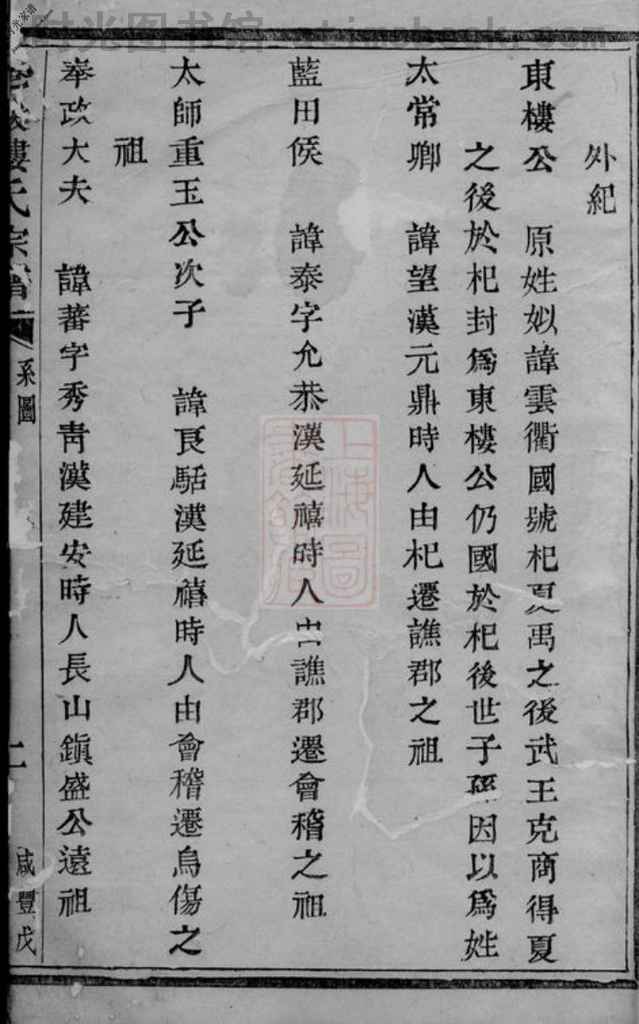 外紀
東樓公　原姓姒諱雲衢國號杞夏禹之後武王克商得夏
之後於杞封爲東樓公仍國於杞後世子孫因以爲姓
太常卿　諱望漢元鼎時人由杞遷譙郡之祖
藍田侯　諱泰字允恭漢延禧時人由譙郡遷會稽之祖
太師重玉公次子　諱良駘漢延禧時人由會稽遷烏傷之
祖
奉政大夫　諱蕃字秀靑漢建安時人長山鎭盛公遠祖
樓氏宗譜
系圖
二
咸豐戊
时光图书馆